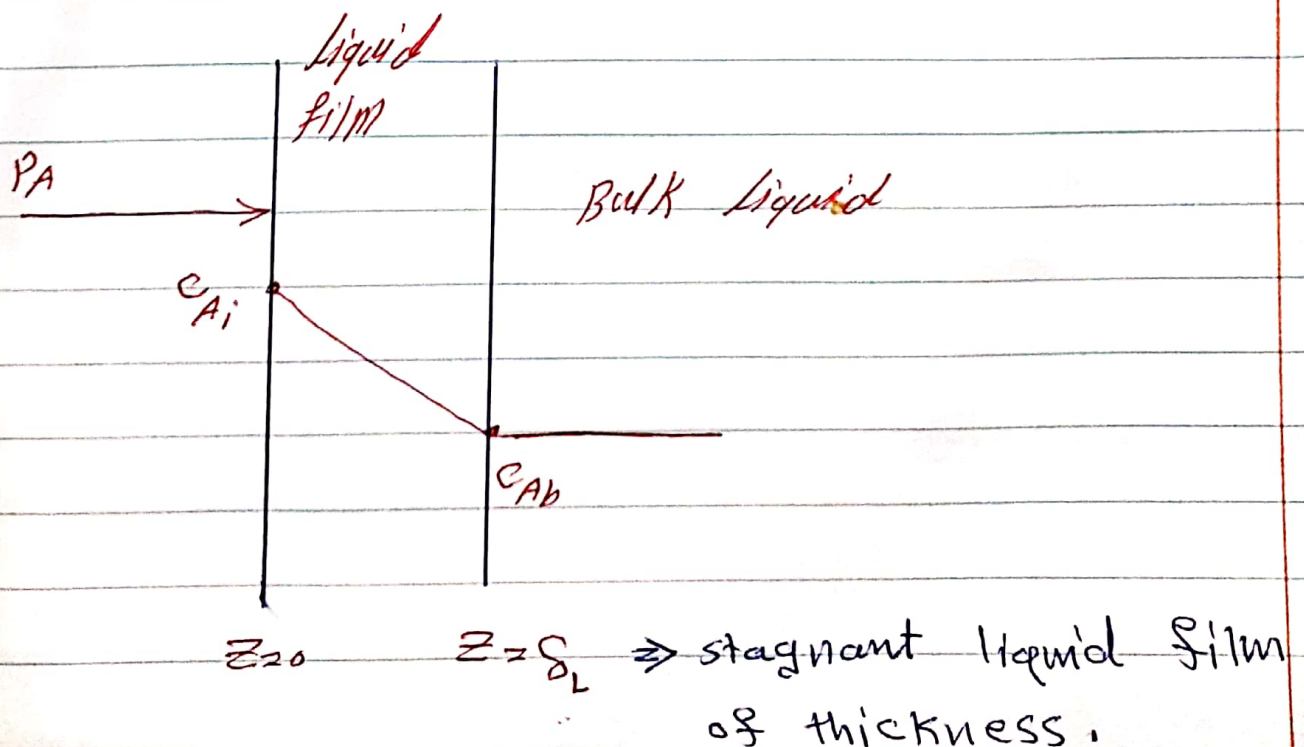 Liquid
film
PA
Bulk Liquid
CAi
CAb
Z=0 Z=δL ⇒ stagnant liquid film
of thickness.